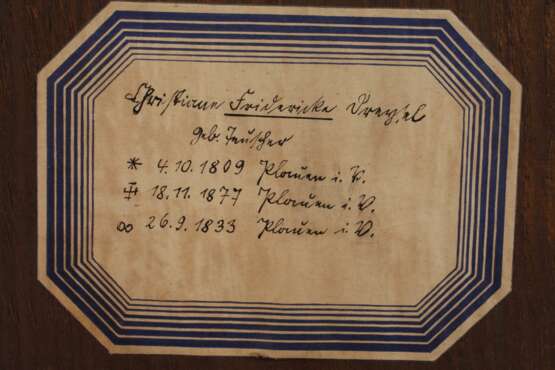 Christiane Fridericke Dreysel
geb. Teuscher
* 4.10.1809 Plauen i. V.
♱ 18.11.1877 Plauen i. V.
∞ 26.9.1833 Plauen i. V.